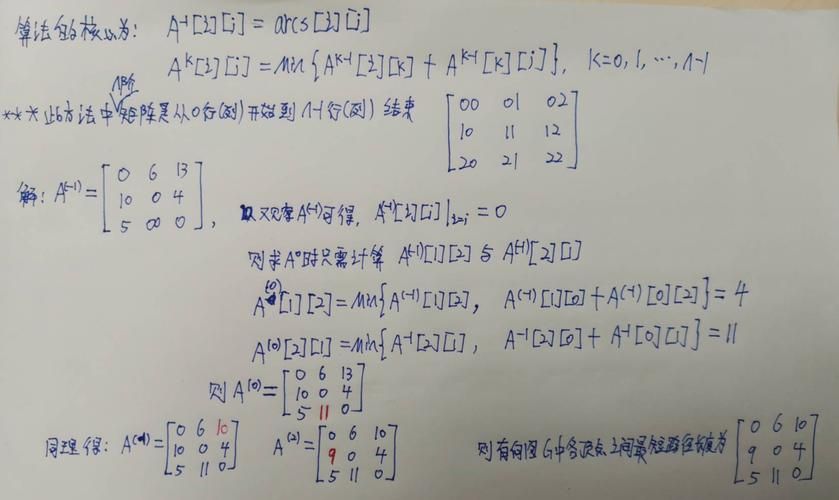 算法的核心为: A⁻¹[i][j] = arcs[i][j]
Aᵏ[i][j] = Min{Aᵏ⁻¹[i][k] + Aᵏ⁻¹[k][j]}, k=0, 1, ⋯, n-1
*** 此方法中n阶矩阵是从0行(列)开始到n-1行(列)结束
[00 01 02
10 11 12
20 21 22]
解: A⁽⁻¹⁾ = [0 6 13
10 0 4
5 ∞ 0],
观察A⁽⁻¹⁾可得, A⁽⁻¹⁾[i][j]|i=j = 0
则求A⁰时只需计算 A⁽⁻¹⁾[1][2] 与 A⁽⁻¹⁾[2][1]
A⁽⁰⁾[1][2] = Min{A⁽⁻¹⁾[1][2], A⁽⁻¹⁾[1][0] + A⁽⁻¹⁾[0][2]} = 4
A⁽⁰⁾[2][1] = Min{A⁻¹[2][1], A⁻¹[2][0] + A⁻¹[0][1]} = 11
则 A⁽⁰⁾ = [0 6 13
10 0 4
5 11 0]
同理得: A⁽¹⁾ = [0 6 10
10 0 4
5 11 0]
A⁽²⁾ = [0 6 10
9 0 4
5 11 0]
则有向图G中各顶点之间最短路径长度为 [0 6 10
9 0 4
5 11 0]